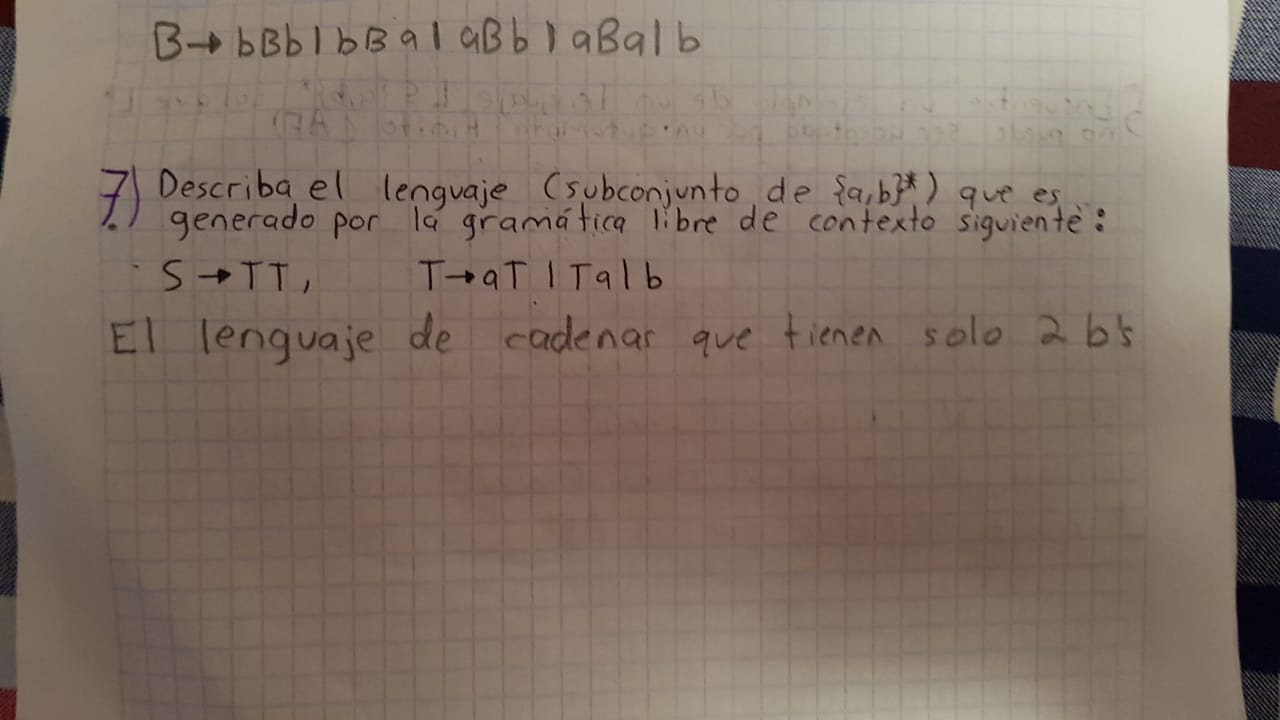 B→ bBb | bBa | aBb | aBa | b
7.) Describa el lenguaje (subconjunto de {a,b}*) que es
generado por la gramática libre de contexto siguiente:
S→TT, T→aT | Ta | b
El lenguaje de cadenas que tienen solo 2 b's